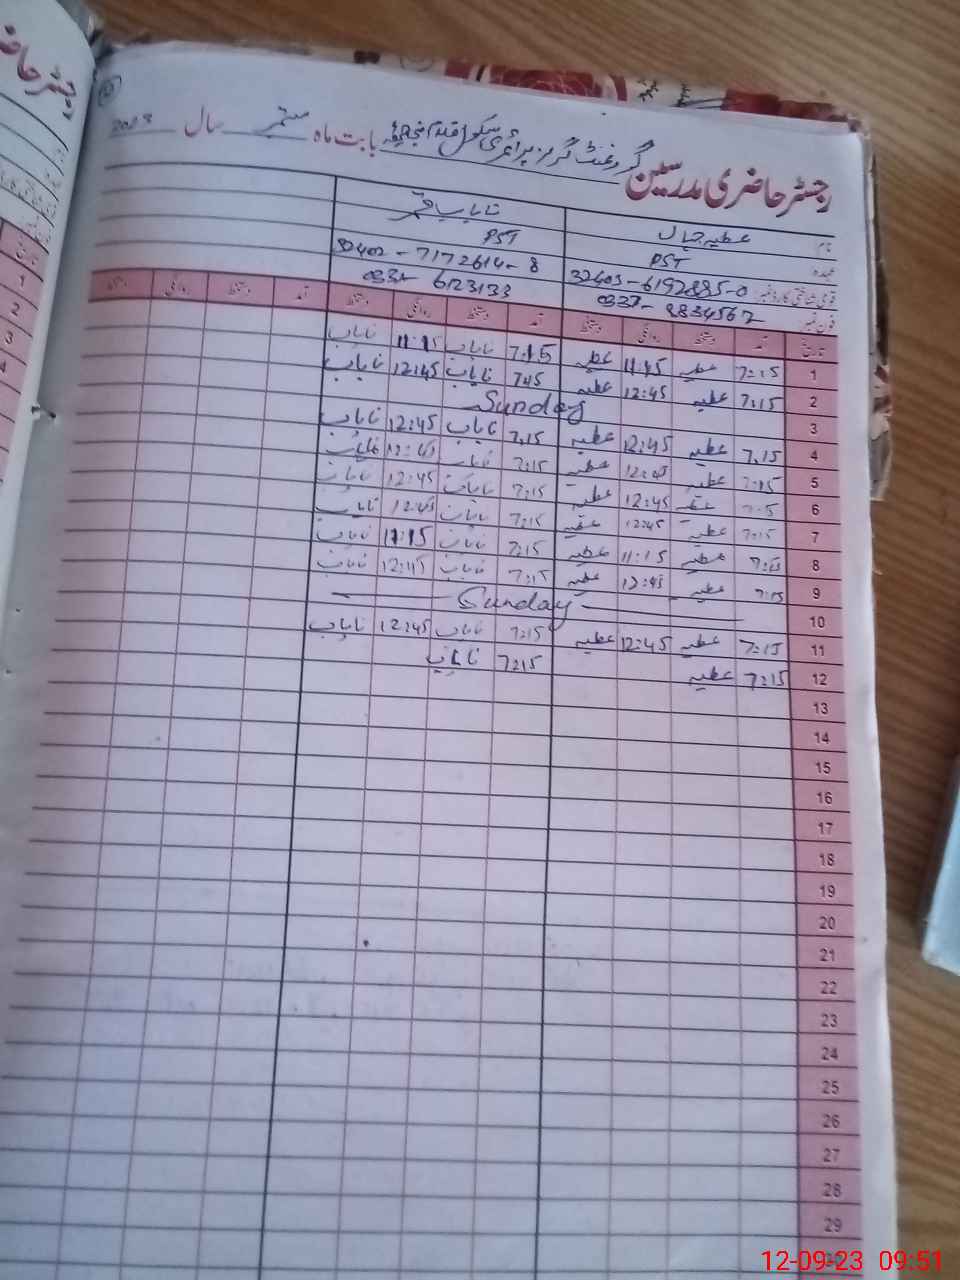 رجسٹر حاضری مدرسین گورنمنٹ گرلز پرائمری سکول بابت ماہ ستمبر سال 2023
نام عطیہ جہاں نایاب قمر
عہدہ PST PST
قومی شناختی کارڈ نمبر 32403-6192885-0 32402-7172614-8
فون نمبر 0337-8834567 0331-6123133
تاریخ آمد دستخط روانگی دستخط آمد دستخط روانگی دستخط آمد دستخط روانگی دستخط
1 7:15 عطیہ 11:15 عطیہ 7:15 نایاب 11:15 نایاب
2 7:15 عطیہ 12:45 عطیہ 7:45 نایاب 12:45 نایاب
3 Sunday
4 7:15 عطیہ 12:45 عطیہ 7:15 نایاب 12:45 نایاب
5 7:15 عطیہ 12:45 عطیہ 7:15 نایاب 12:45 نایاب
6 7:15 عطیہ 12:45 عطیہ 7:15 نایاب 12:45 نایاب
7 7:15 عطیہ 12:45 عطیہ 7:15 نایاب 12:45 نایاب
8 7:15 عطیہ 11:15 عطیہ 7:15 نایاب 11:15 نایاب
9 7:15 عطیہ 12:45 عطیہ 7:15 نایاب 12:45 نایاب
10 Sunday
11 7:15 عطیہ 12:45 عطیہ 7:15 نایاب 12:45 نایاب
12 7:15 عطیہ 7:15 نایاب
13
14
15
16
17
18
19
20
21
22
23
24
25
26
27
28
29
30
12-09-23 09:51